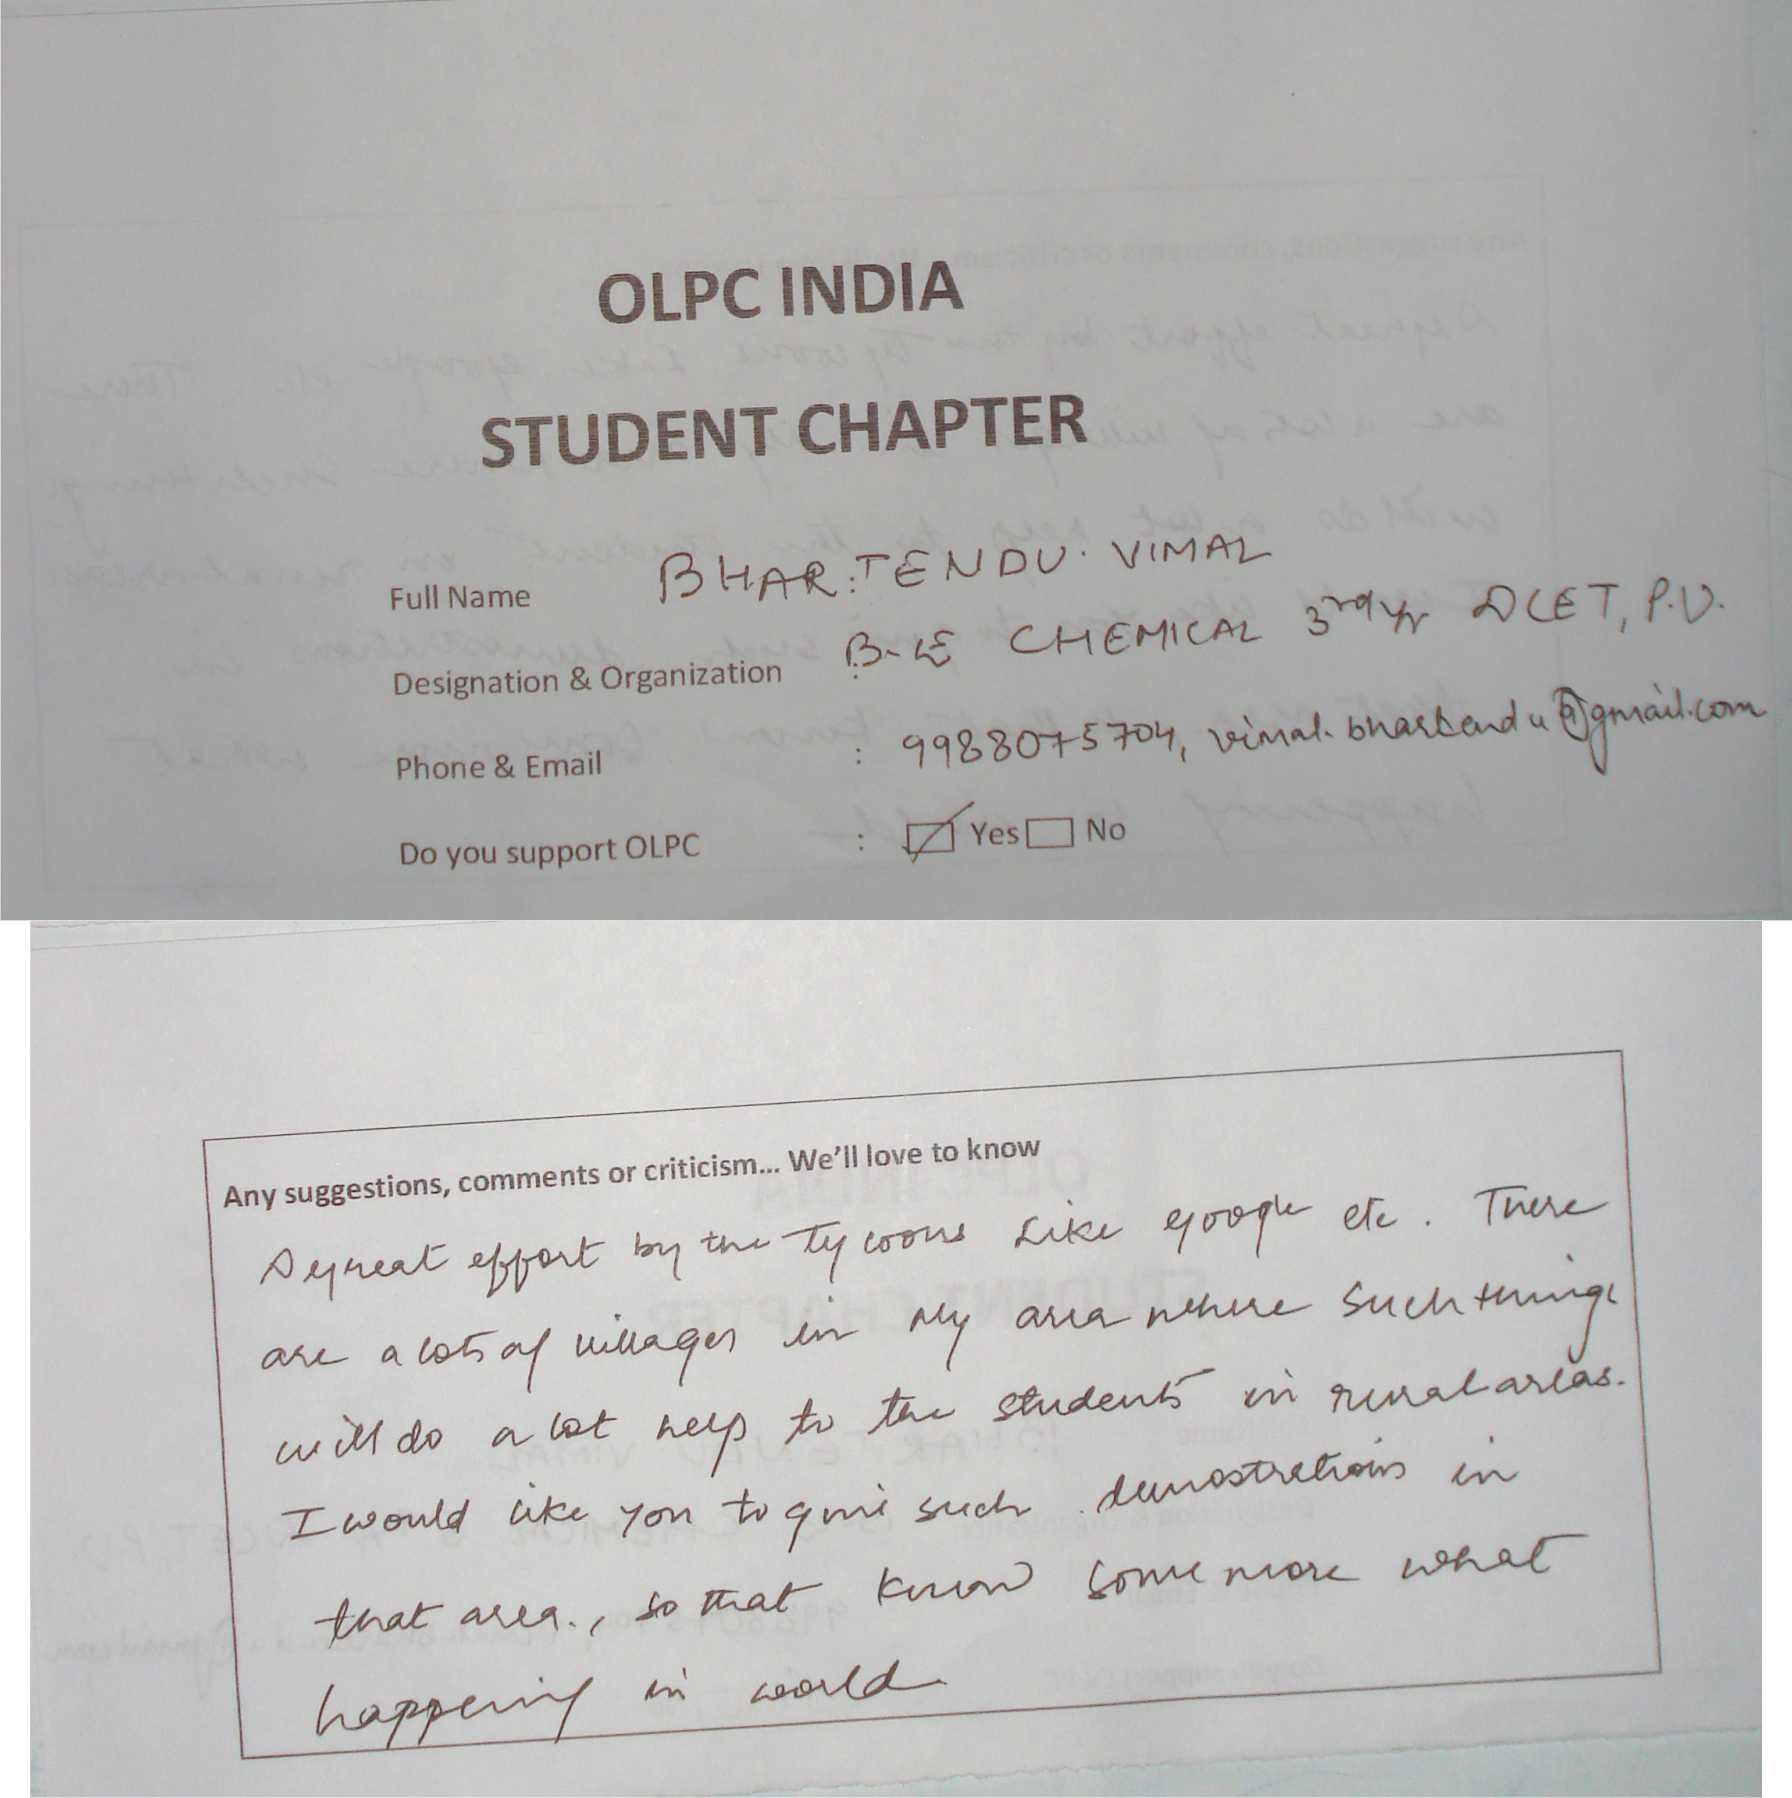 OLPC INDIA
STUDENT CHAPTER
Full Name : BHARTENDU. VIMAL
Designation & Organization : B.E CHEMICAL 3rd yr DCET, P.U.
Phone & Email : 9988075704, vimal.bhartendu@gmail.com
Do you support OLPC : Yes No
Any suggestions, comments or criticism... We'll love to know
A great effort by the tycoons Like google etc. There
are a lots of villages in My area where such things
will do a lot help to the students in rural areas.
I would like you to give such demostrations in
that area., so that know some more what
happening in world.